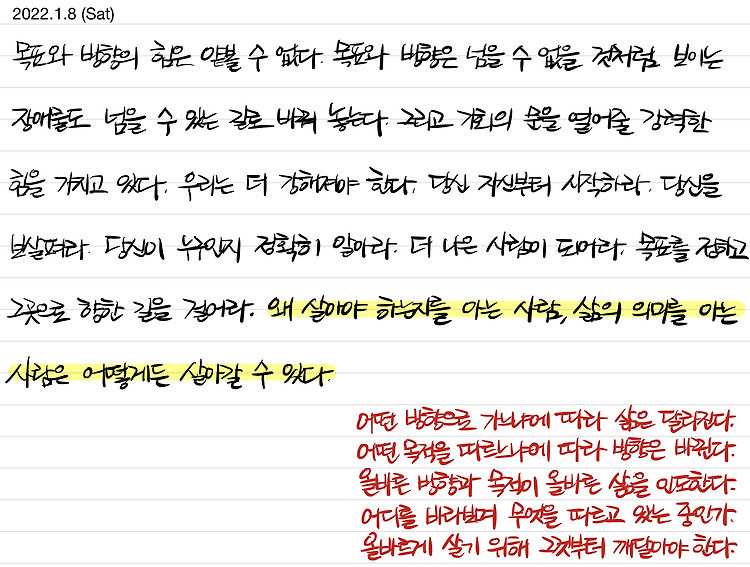 2022.1.8 (Sat)
목표와 방향의 힘은 얕볼 수 없다. 목표와 방향은 넘을 수 없을 것처럼 보이는
장애물도 넘을 수 있는 길로 바꿔 놓는다. 그리고 기회의 문을 열어줄 강력한
힘을 가지고 있다. 우리는 더 강해져야 한다. 당신 자신부터 시작하라. 당신을
보살펴라. 당신이 누구인지 정확히 알아라. 더 나은 사람이 되어라. 목표를 정하고
그곳으로 향한 길을 걸어라. 왜 살아야 하는지를 아는 사람, 삶의 의미를 아는
사람은 어떻게든 살아갈 수 있다.
어떤 방향으로 가느냐에 따라 삶은 달라진다.
어떤 목적을 따르느냐에 따라 방향은 바뀐다.
올바른 방향과 목적이 올바른 삶을 인도한다.
어디를 바라보며 무엇을 따르고 있는 중인가.
올바르게 살기 위해 그것부터 깨달아야 한다.